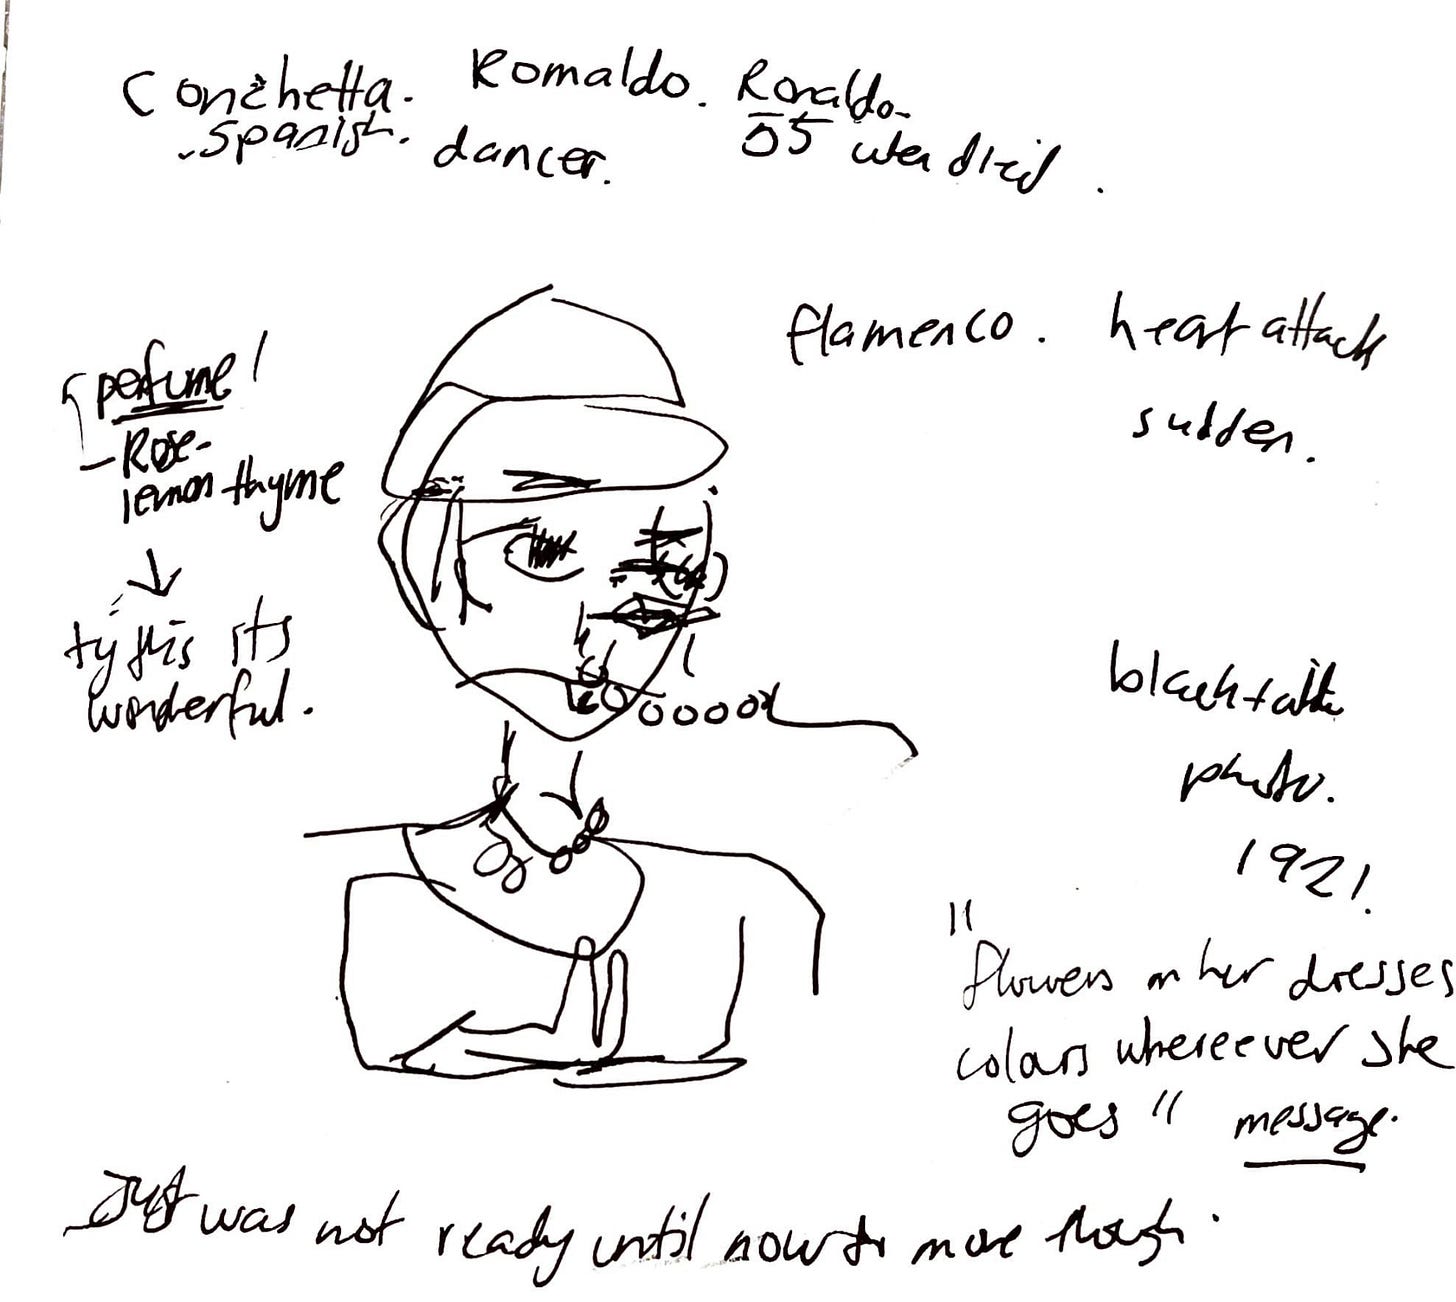 Conchetta. Romaldo. Ronaldo.
Spanish. dancer. 55 when died.
flamenco. heart attack
sudden.
perfume!
- Rose-
lemon thyme
try this its
wonderful.
black + white
photo.
1921.
"flowers on her dresses
colours whereever she
goes" message.
Just was not ready until now to move though.